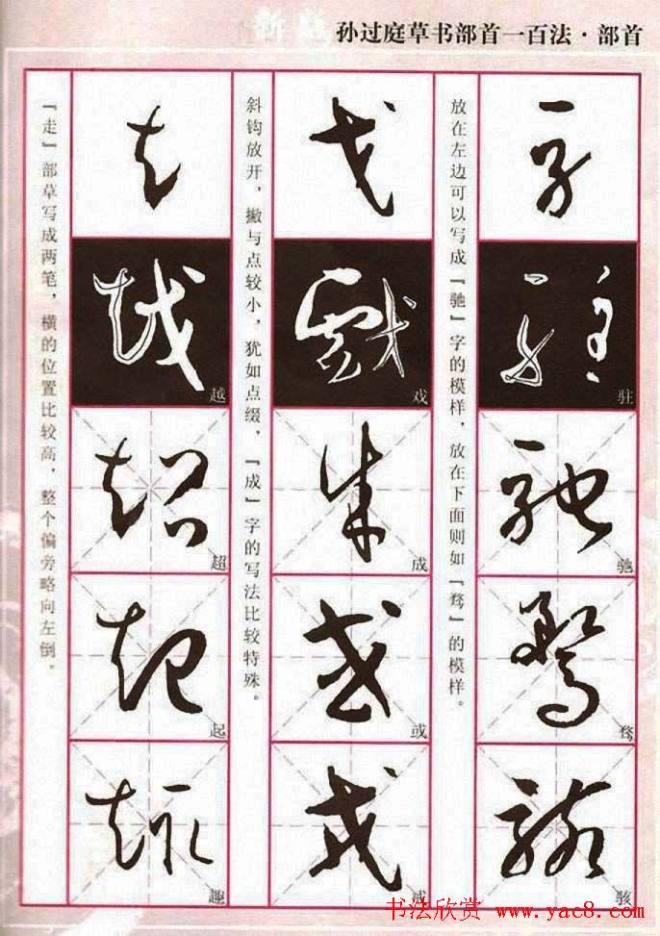 孙过庭草书部首一百法·部首
驻
驰
骛
骇
放在左边可以写成「驰」字的模样，放在下面则如「骛」的模样。
戏
成
或
斜钩放开，撇与点较小，犹如点缀，「成」字的写法比较特殊。
越
超
起
趣
「走」部草写成两笔，横的位置比较高，整个偏旁略向左倒。
书法欣赏 www.yac8.com